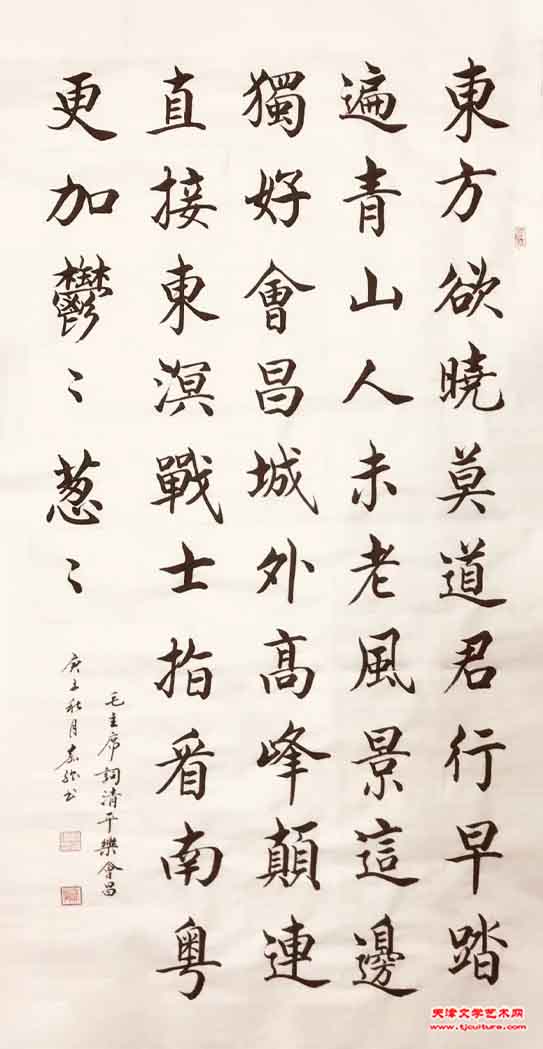 東方欲曉莫道君行早踏
遍青山人未老風景這邊
獨好會昌城外高峰顛連
直接東溟戰士指看南粤
更加鬱〻葱〻
毛主席詞清平樂會昌
庚子秋月书
天津文学艺术网
www.tjculture.com